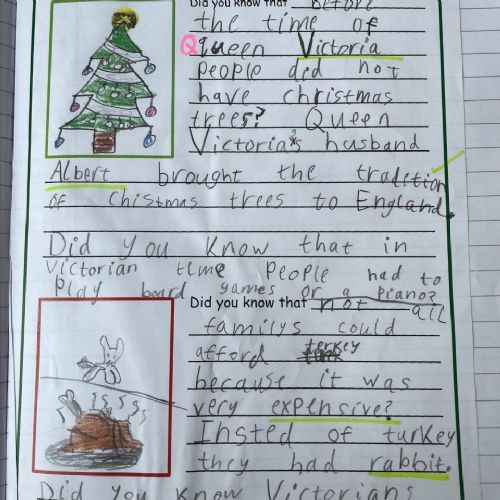 Did you know that before
the time of
Queen Victoria
people did not
have christmas
trees? Queen
Victoria's husband
Albert brought the tradetion
of chistmas trees to England.
Did you know that in
victorian time people had to
play board games or a piano?
Did you know that not all
familys could
afford terkey
because it was
very expensive?
Insted of turkey
they had rabbit.
Did you know Victorians